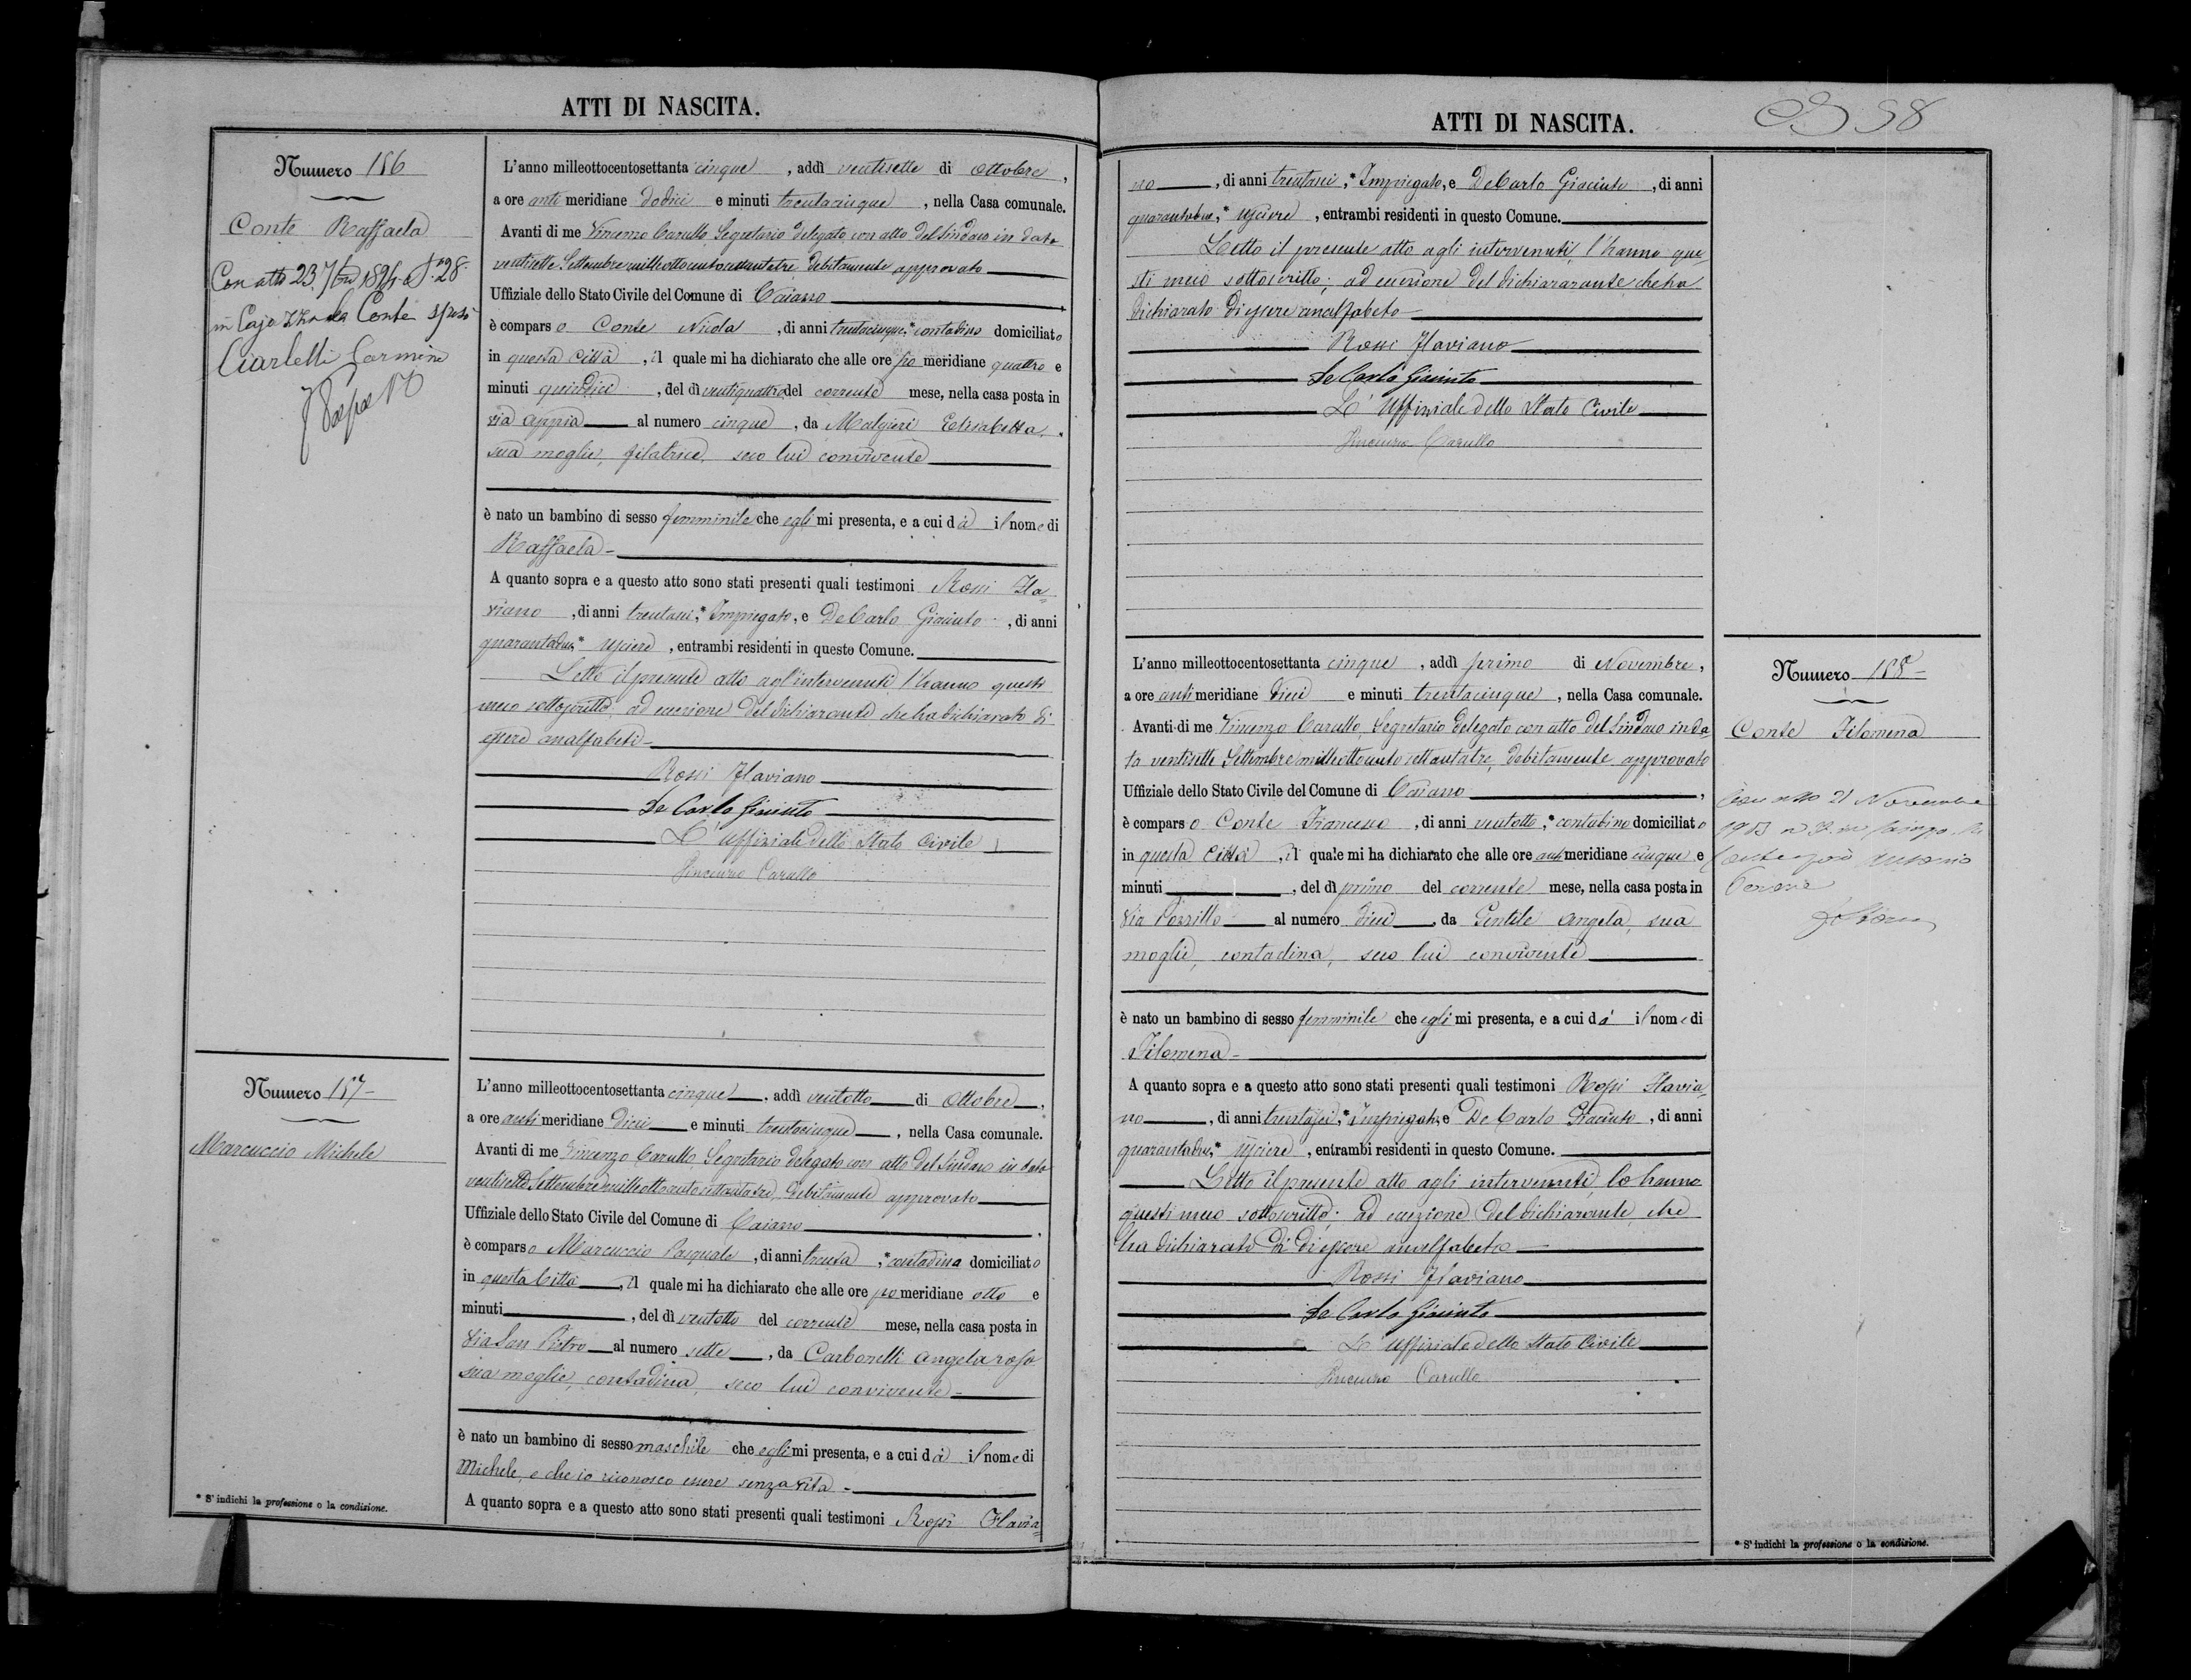 ATTI DI NASCITA.
Numero 186
Conte Raffaela
Con atto 23 7bre 1894 N.° 28
in Cajazzo la Conte sposò
Ciarletti Carmine
L'anno milleottocentosettanta cinque, addì ventisette di Ottobre,
a ore anti meridiane dodici e minuti trentacinque, nella Casa comunale.
Avanti di me Vincenzo Carullo, Segretario delegato con atto del Sindaco in data
ventisette Settembre milleottocentosettantatre, debitamente approvato
Uffiziale dello Stato Civile del Comune di Caiazzo
è comparso Conte Nicola, di anni trentacinque,* contadino domiciliato
in questa Città, il quale mi ha dichiarato che alle ore po meridiane quattro e
minuti quindici, del dì ventiquattro del corrente mese, nella casa posta in
via Appia al numero cinque, da Malgieri Elisabetta,
sua moglie, filatrice, seco lui convivente
è nato un bambino di sesso femminile che egli mi presenta, e a cui dà il nome di
Raffaela
A quanto sopra e a questo atto sono stati presenti quali testimoni Rossi Fla=
viano, di anni trentasei,* Impiegato, e De Carlo Giacinto, di anni
quarantadue,* usciere, entrambi residenti in questo Comune.
Letto il presente atto agl'intervenuti, l'hanno questi
meco sottoscritto, ad eccezione del dichiarante che ha dichiarato di
essere analfabeti
Rossi Flaviano
De Carlo Giacinto
L'Uffiziale dello Stato Civile
Vincenzo Carullo
Numero 187
Marcuccio Michele
* S' indichi la professione o la condizione.
L'anno milleottocentosettanta cinque, addì ventotto di Ottobre,
a ore anti meridiane dieci e minuti trentacinque, nella Casa comunale.
Avanti di me Vincenzo Carullo, Segretario delegato con atto del Sindaco in data
ventisette Settembre milleottocentosettantatre, debitamente approvato
Uffiziale dello Stato Civile del Comune di Caiazzo,
è comparso Marcuccio Pasquale, di anni trenta,* contadina domiciliato
in questa Città, il quale mi ha dichiarato che alle ore po meridiane otto e
minuti, del dì ventotto del corrente mese, nella casa posta in
Via San Pietro al numero sette, da Carbonelli Angelarosa
sua moglie, contadina, seco lui convivente
è nato un bambino di sesso maschile che egli mi presenta, e a cui dà il nome di
Michele, e che io riconosco essere senza vita
A quanto sopra e a questo atto sono stati presenti quali testimoni Rossi Flavia=
ATTI DI NASCITA.
98
no, di anni trentasei,* Impiegato, e De Carlo Giacinto, di anni
quarantadue,* usciere, entrambi residenti in questo Comune.
Letto il presente atto agli intervenuti, l'hanno que=
sti meco sottoscritto; ad eccezione del dichiararante che ha
dichiarato di essere analfabeto
Rossi Flaviano
De Carlo Giacinto
L'Uffiziale dello Stato Civile
Vincenzo Carullo
L'anno milleottocentosettanta cinque, addì primo di Novembre,
a ore anti meridiane dieci e minuti trentacinque, nella Casa comunale.
Avanti di me Vincenzo Carullo, Segretario delegato con atto del Sindaco in da=
ta ventisette Settembre milleottocentosettantatre, debitamente approvato
Uffiziale dello Stato Civile del Comune di Caiazzo,
è comparso Conte Francesco, di anni ventotto,* contadino domiciliato
in questa Città, il quale mi ha dichiarato che alle ore anti meridiane cinque e
minuti, del dì primo del corrente mese, nella casa posta in
Via Pozzillo al numero dieci, da Gentile Angela, sua
moglie, contadina, seco lui convivente
è nato un bambino di sesso femminile che egli mi presenta, e a cui dà il nome di
Filomena
A quanto sopra e a questo atto sono stati presenti quali testimoni Rossi Flavia=
no, di anni trentasei,* Impiegato, e De Carlo Giacinto, di anni
quarantadue,* usciere, entrambi residenti in questo Comune.
Letto il presente atto agli intervenuti, lo hanno
questi meco sottoscritto; ad eccezione del dichiarante, che
ha dichiarato di di essere analfabeto
Rossi Flaviano
De Carlo Giacinto
L'Uffiziale dello Stato Civile
Vincenzo Carullo
Numero 188
Conte Filomena
atto 21 Novembre
* S' indichi la professione o la condizione.